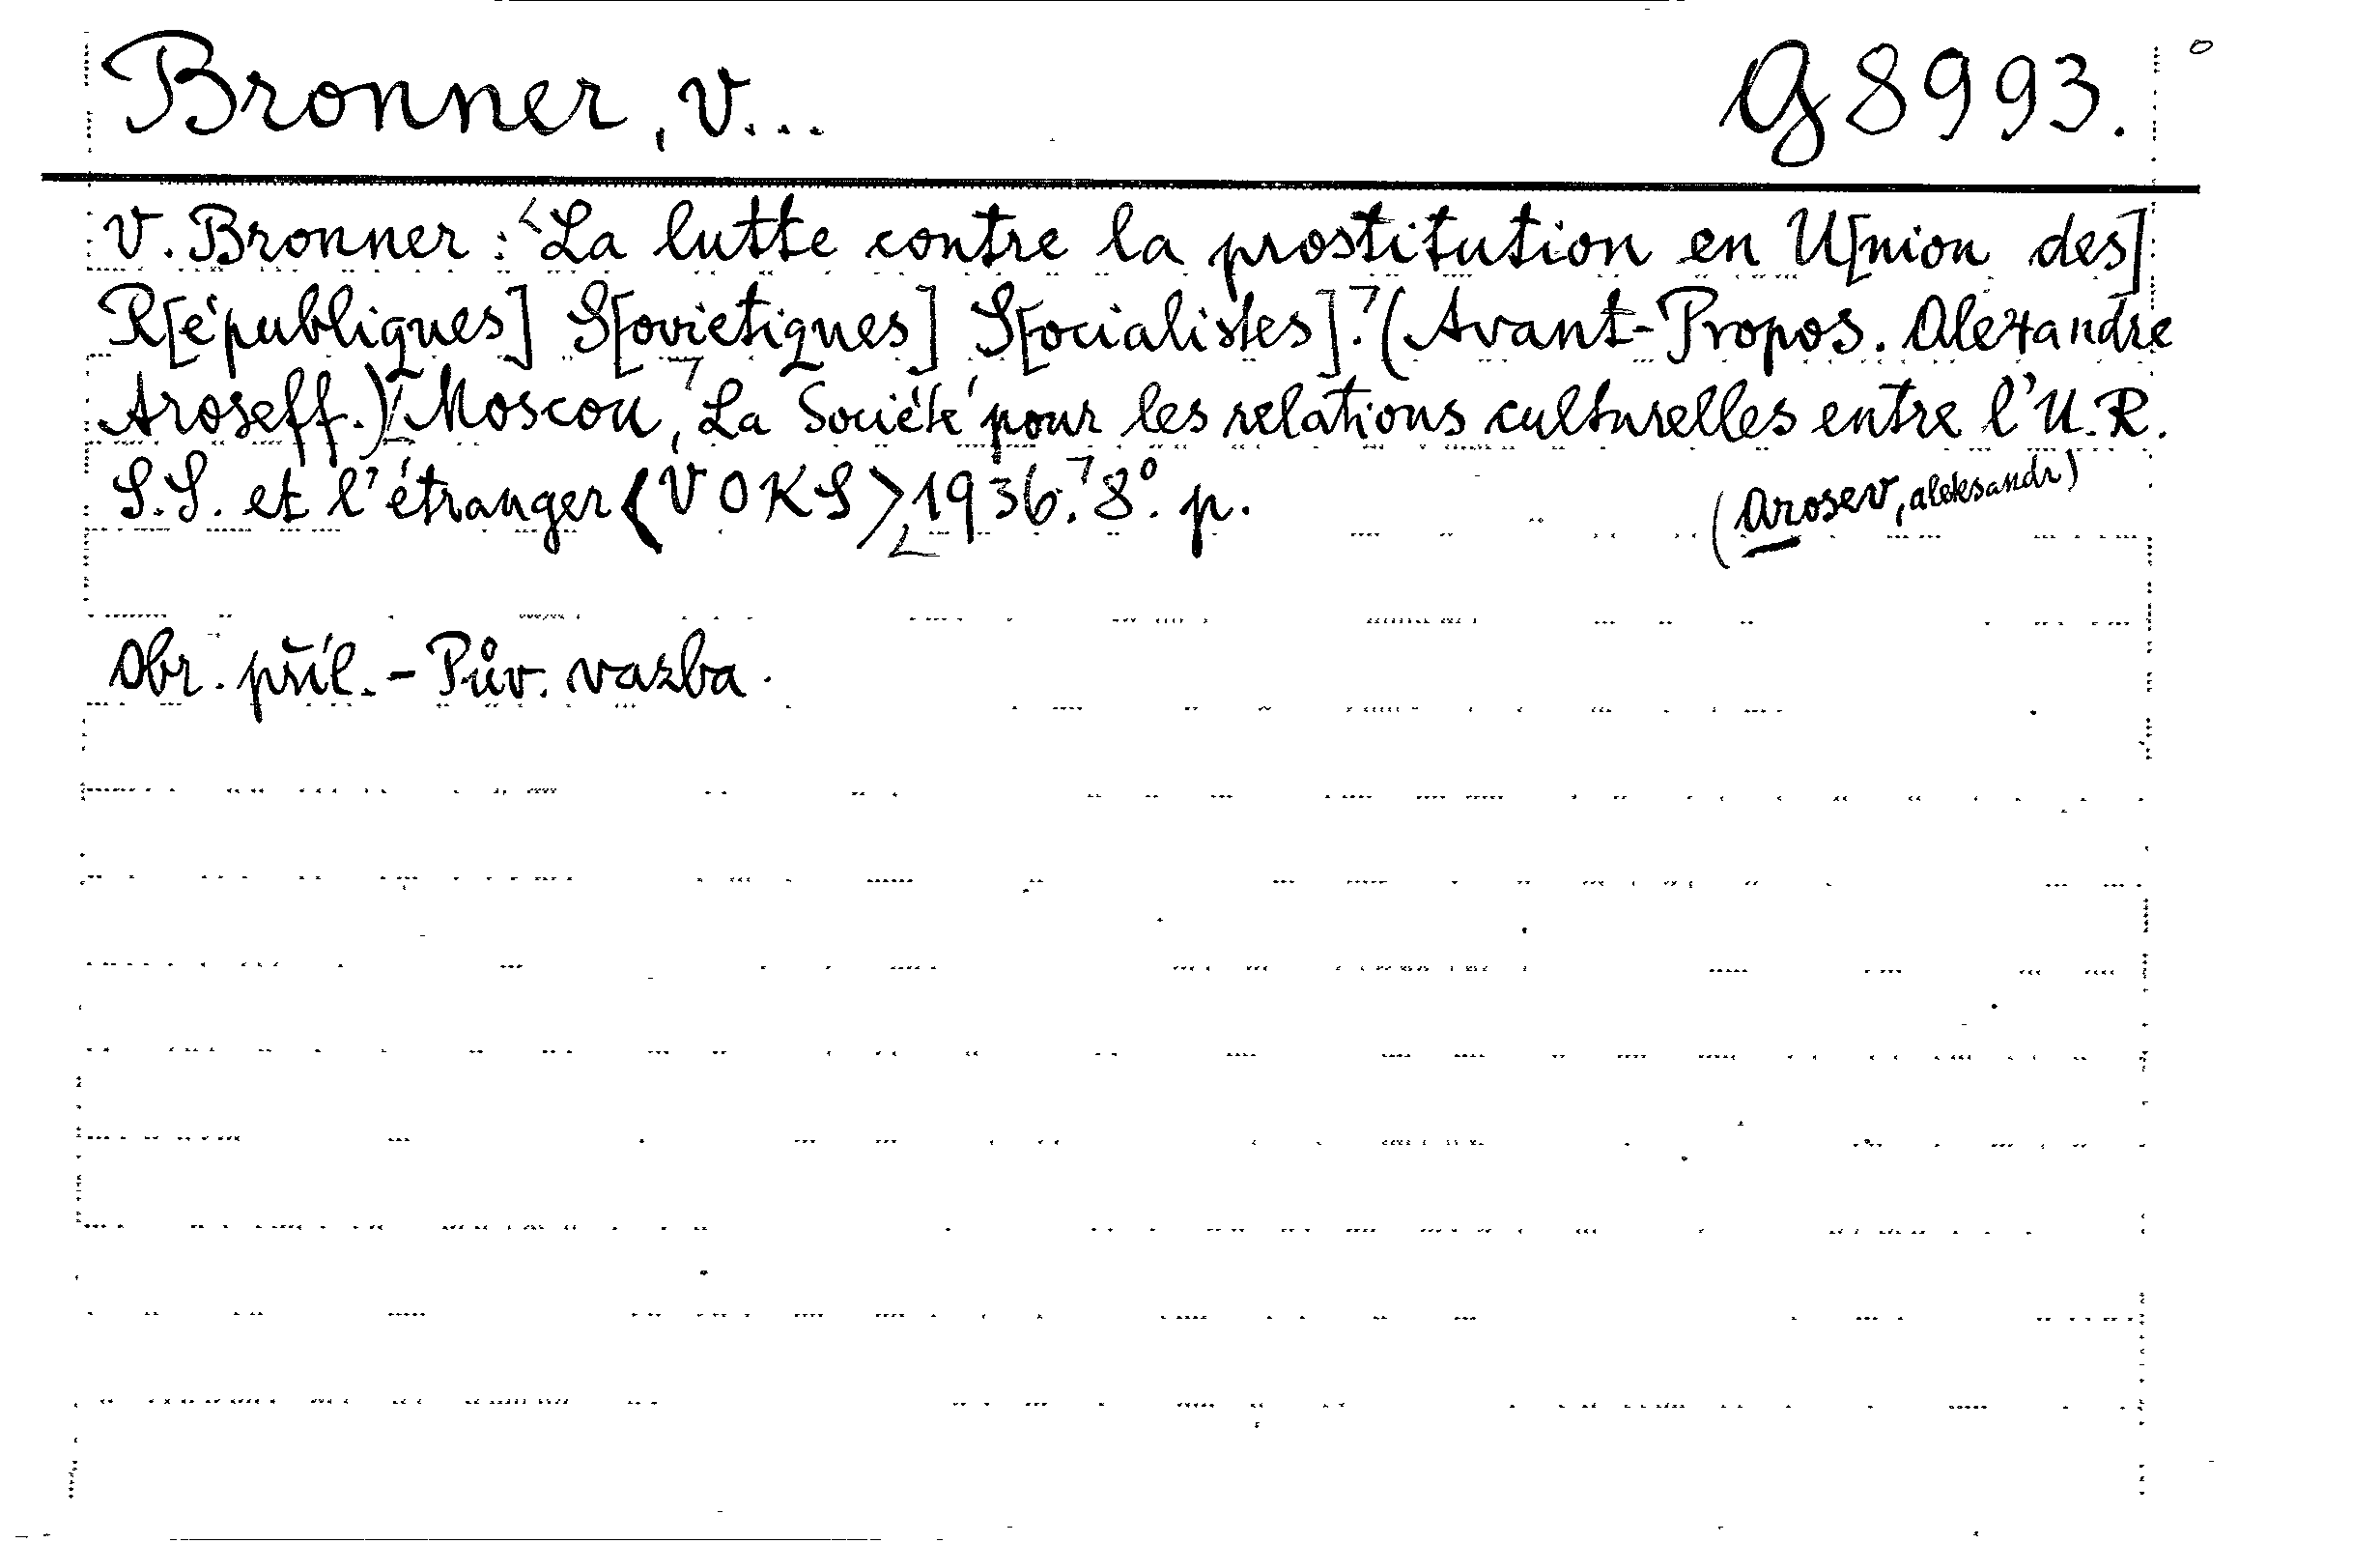 Bronner, V... G 8993.
V. Bronner: La lutte contre la prostitution en U[nion des]
R[épubliques] S[ovietiques] S[ocialistes]. (Avant-Propos. Alexandre
Aroseff.) Moscou, La Société pour les relations culturelles entre l'U.R.
S.S. et l'étranger <VOKS> 1936. 8°. p.
(Arosev, Aleksandr)
Obr. příl. - Pův. vazba.